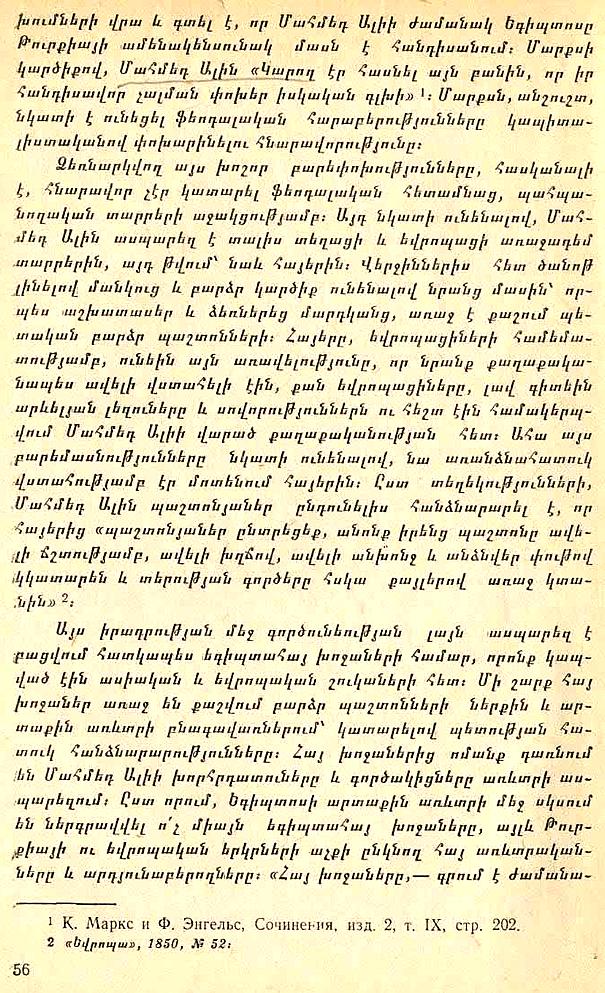 խումների վրա և գտել է, որ Մահմեդ Ալիի ժամանակ Եգիպտոսը
Թուրքիայի ամենակենսունակ մասն է հանդիսանում։ Մարքսի
կարծիքով, Մահմեդ Ալին «Կարող էր հասնել այն բանին, որ իր
հանդիսավոր չալման փոխեր իսկական գլխի» ¹։ Մարքսն, անշուշտ,
նկատի է ունեցել ֆեոդալական հարաբերությունները կապիտա-
լիստականով փոխարինելու հնարավորությունը։
Ձեռնարկվող այս խոշոր բարեփոխությունները, հասկանալի
է, հնարավոր չէր կատարել ֆեոդալական հետամնաց, պահպա-
նողական տարրերի աջակցությամբ։ Այդ նկատի ունենալով, Մահ-
մեդ Ալին ասպարեզ է տալիս տեղացի և եվրոպացի առաջադեմ
տարրերին, այդ թվում՝ նաև հայերին։ Վերջիններիս հետ ծանոթ
լինելով մանկուց և բարձր կարծիք ունենալով նրանց մասին՝ որ-
պես աշխատասեր և ձեռներեց մարդկանց, առաջ է քաշում պե-
տական բարձր պաշտոնների։ Հայերը, եվրոպացիների համեմա-
տությամբ, ունեին այն առավելությունը, որ նրանք քաղաքակա-
նապես ավելի վստահելի էին, քան եվրոպացիները, լավ գիտեին
արևելյան լեզուները և սովորություններն ու հեշտ էին համակերպ-
վում Մահմեդ Ալիի վարած քաղաքականության հետ։ Ահա այս
բարեմասնությունները նկատի ունենալով, նա առանձնահատուկ
վստահությամբ էր մոտենում հայերին։ Ըստ տեղեկությունների,
Մահմեդ Ալին պաշտոնյաներ ընդունելիս հանձնարարել է, որ
հայերից «պաշտոնյաներ ընտրեցեք, անոնք իրենց պաշտոնը ավե-
լի ճշտությամբ, ավելի խղճով, ավելի անխոնջ և անձնվեր փութով
կկատարեն և տերության գործերը հսկա քայլերով առաջ կտա-
նին» ²։
Այս իրադրության մեջ գործունեության լայն ասպարեզ է
բացվում հատկապես եգիպտահայ խոջաների համար, որոնք կապ-
ված էին ասիական և եվրոպական շուկաների հետ։ Մի շարք հայ
խոջաներ առաջ են քաշվում բարձր պաշտոնների ներքին և ար-
տաքին առևտրի բնագավառներում՝ կատարելով պետության հա-
տուկ հանձնարարությունները։ Հայ խոջաներից ոմանք դառնում
են Մահմեդ Ալիի խորհրդատուները և գործակիցները առևտրի աս-
պարեզում։ Ըստ որում, Եգիպտոսի արտաքին առևտրի մեջ սկսում
են ներգրավվել ո՛չ միայն եգիպտահայ խոջաները, այլև Թուր-
քիայի ու եվրոպական երկրների աչքի ընկնող հայ առևտրական-
ները և արդյունաբերողները։ «Հայ խոջաները,— գրում է ժամանա-
1 К. Маркс и Ф. Энгельс, Сочинения, изд. 2, т. IX, стр. 202.
2 «Եվրոպա», 1850, № 52։
56